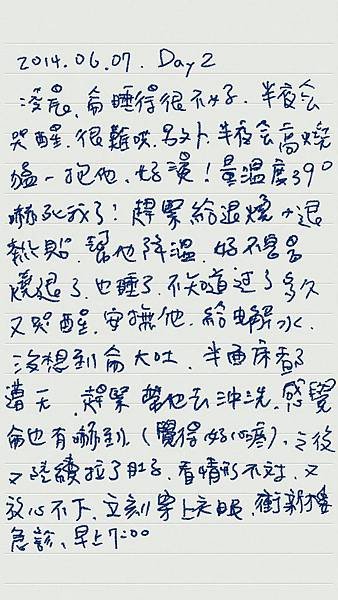 2014.06.07. Day 2
凌晨,侖睡得很不好.半夜会
哭醒.很難哄.另外.半夜会高燒
一抱他,好燙!量溫度39°
嚇死我了!趕緊給退燒+退
熱貼.幫他降溫.好不容易
燒退了.也睡了.不知道过了多久
又哭醒.安撫他.給电解水.
沒想到侖大吐.半面床都
遭 .趕緊幫他去沖洗.感覺
侖也有嚇到.(覺得好心疼).之後
又陸續拉了肚子.看情形不对.又
放心不下.立刻穿上衣服.衝新樓
急診.早上7:00